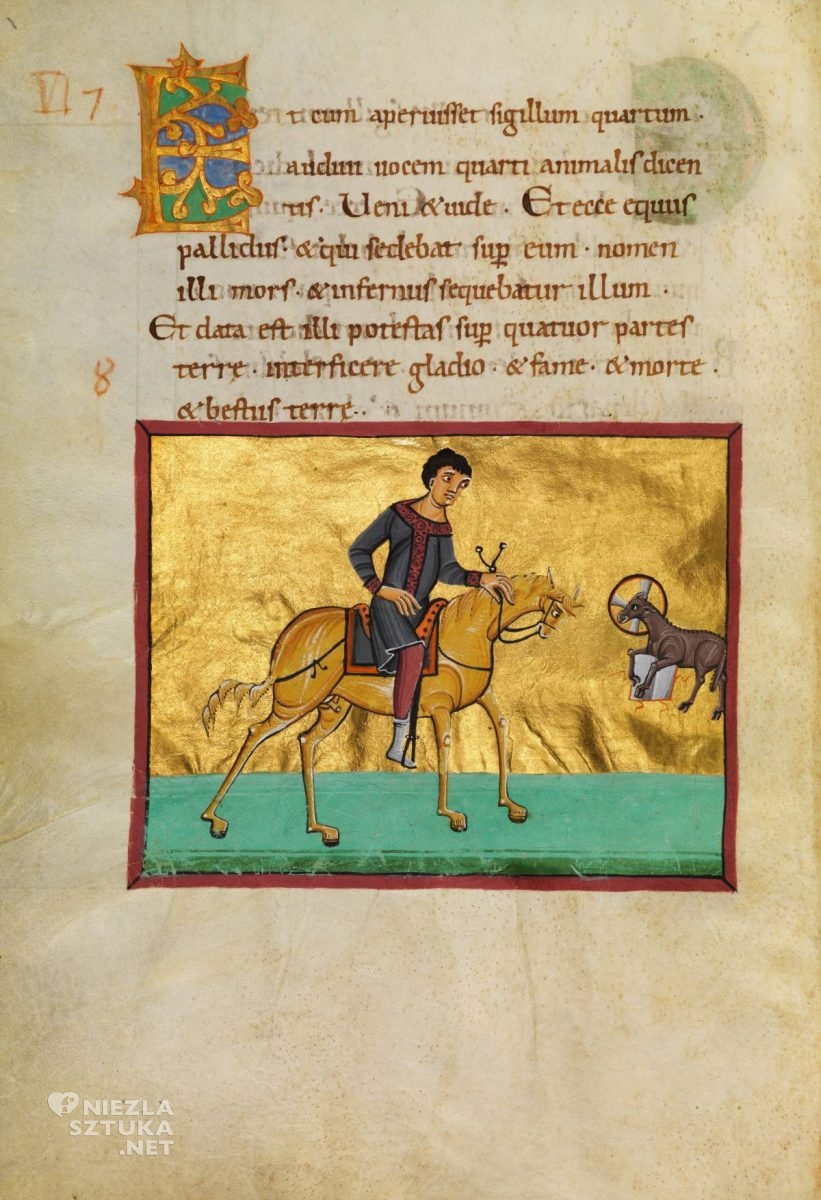 VI 7
Et cum aperuisset sigillum quartum ·
audiui uocem quarti animalis dicen
tis · Ueni & uide · Et ecce equus
pallidus · & qui sedebat sup eum · nomen
illi mors · & infernus sequebatur illum ·
Et data est illi potestas sup quatuor partes
8
terrę · interficere gladio · & fame · & morte ·
& bestiis terrę ·
NIEZLA
SZTUKA
.NET